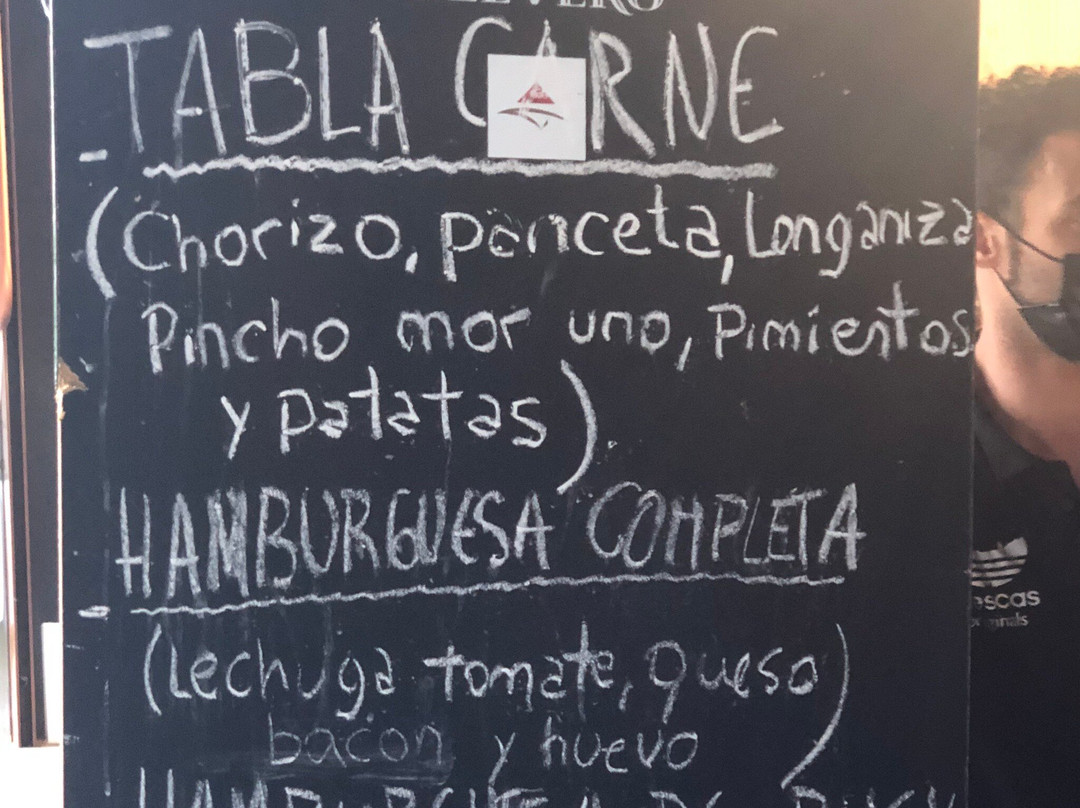 TABLA CARNE
(Chorizo, panceta, Longaniza
Pincho moruno, Pimientos
y patatas).
HAMBURGUESA COMPLETA
(Lechuga tomate, queso)
bacon y huevo
escas
originals